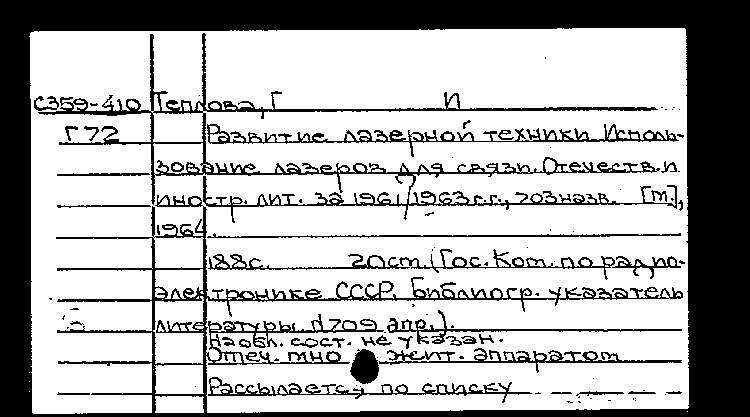 С359-410 Теплова, Г И
Г72 Развитие лазерной техники Исполь-
зование лазеров для связи. Отечеств. и
иностр. лит. за 1961/1963 г.г., 703 назв. [М.],
1964.
188с. 20см. (Гос. Ком. по радио-
электронике СССР. Библиогр. указатель
литературы. 709 апр.).
На обл. сост. не указан.
Отеч. аппаратом
Рассылается по списку